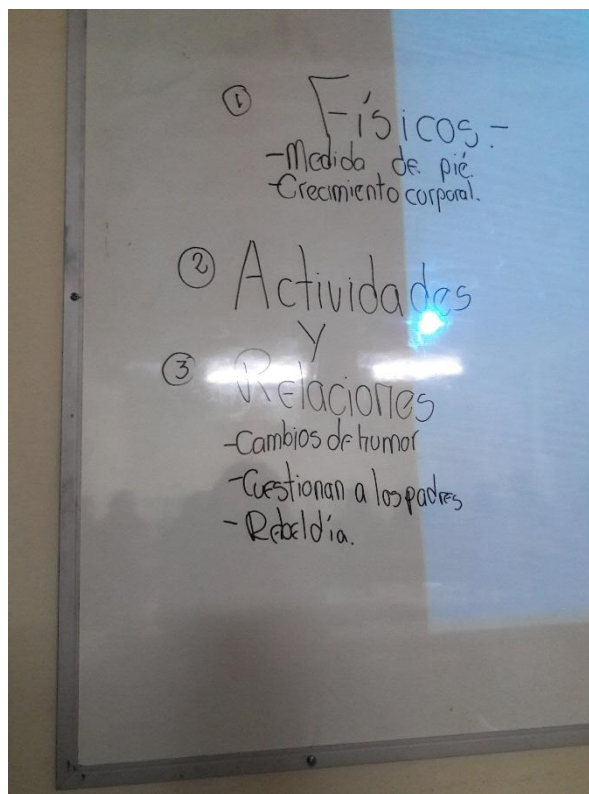 ① Físicos.-
-Medida de pié.
-Crecimiento corporal.
② Actividades
y
③ Relaciones
-Cambios de humor
-Cuestionan a los padres
-Rebeldía.